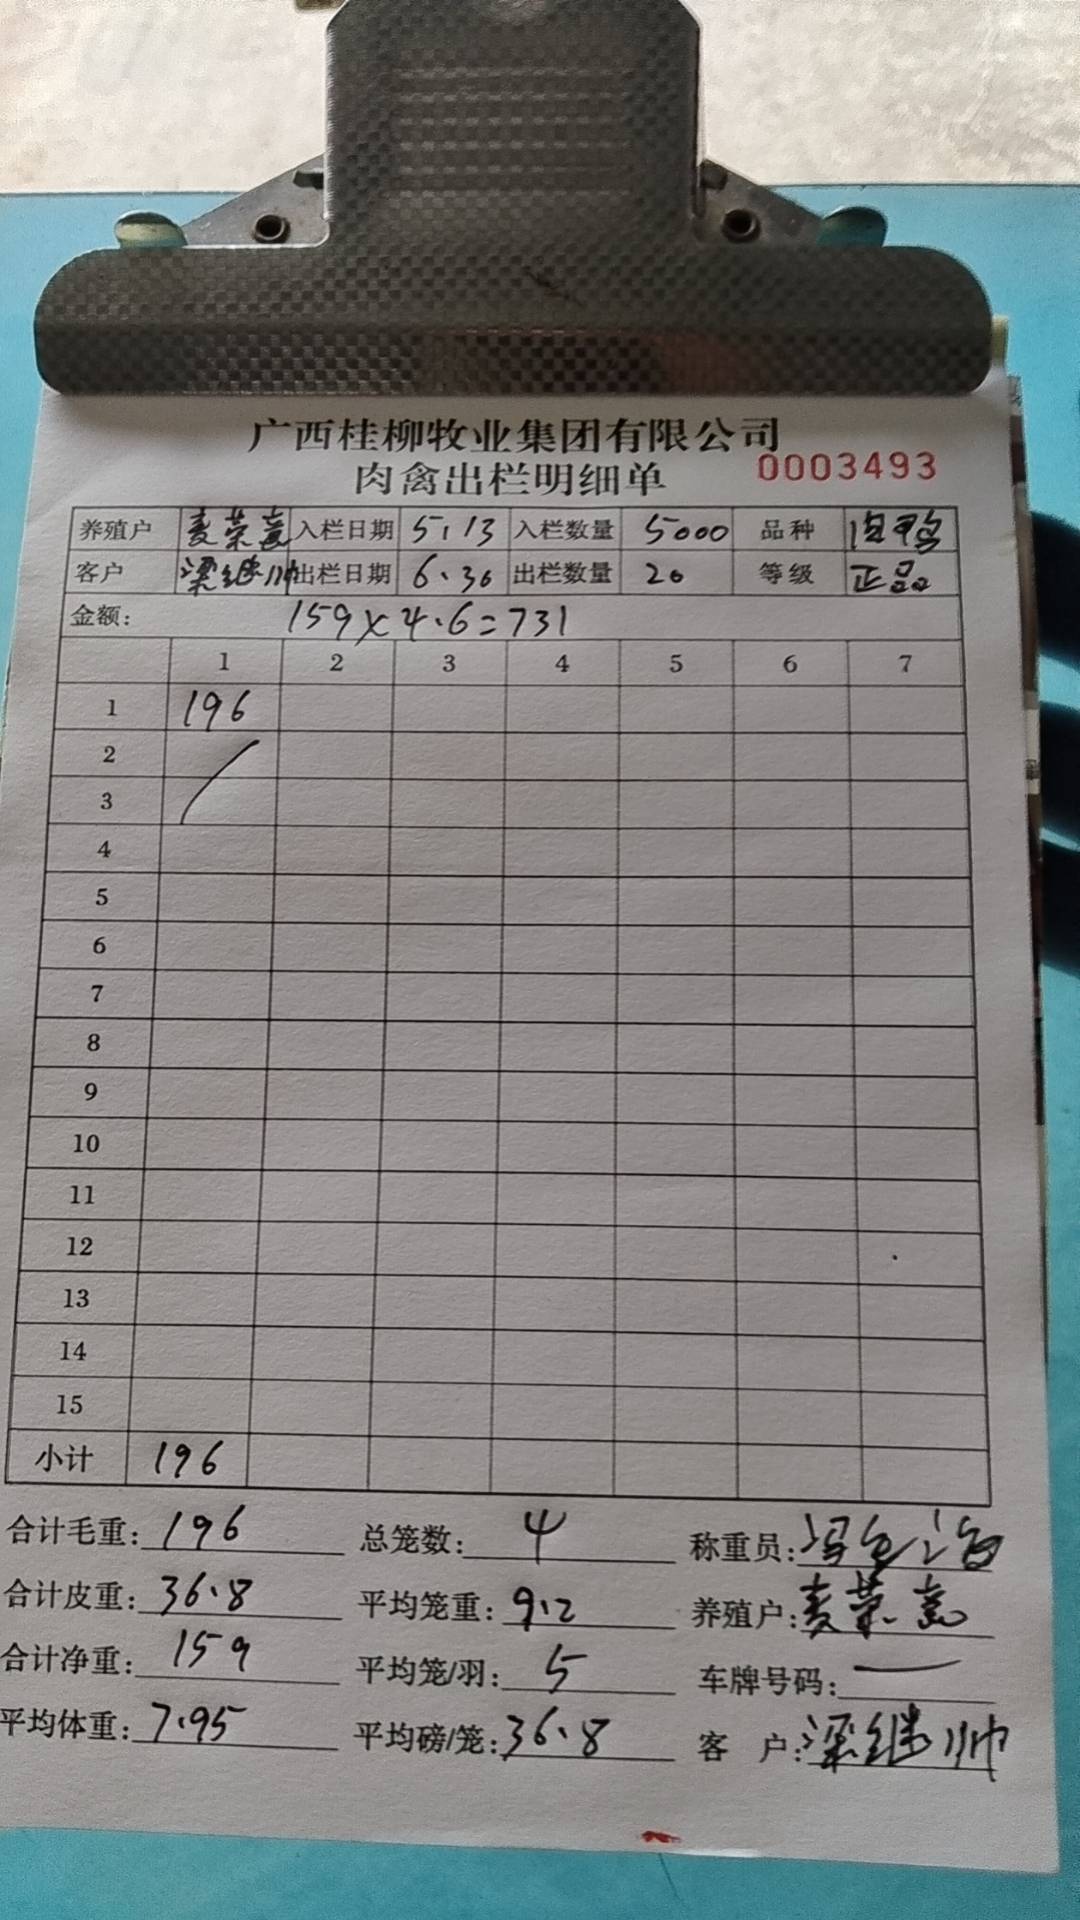 广西桂柳牧业集团有限公司
肉禽出栏明细单 0003493
养殖户 麦荣喜 入栏日期 5.13 入栏数量 5000 品种 肉鸭
客户 梁继帅 出栏日期 6.30 出栏数量 20 等级 正品
金额: 159×4.6=731
1 2 3 4 5 6 7
1 196
2
3
4
5
6
7
8
9
10
11
12
13
14
15
小计 196
合计毛重: 196 总笼数: 4 称重员:
合计皮重: 36.8 平均笼重: 9.2 养殖户: 麦荣喜
合计净重: 159 平均笼/羽: 5 车牌号码: —
平均体重: 7.95 平均磅/笼: 36.8 客 户: 梁继帅